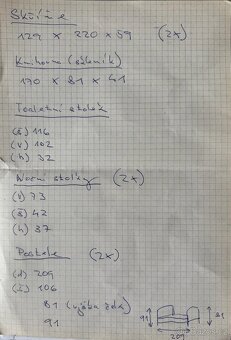 Skříně
129 x 220 x 59 (2x)
Knihovna (sekník)
170 x 81 x 41
Toaletní stolek
(š) 116
(v) 102
(h) 32
Noční stolky (2x)
(v) 73
(š) 42
(h) 37
Postele (2x)
(d) 209
(š) 106
81 (výška
91
91
81
209